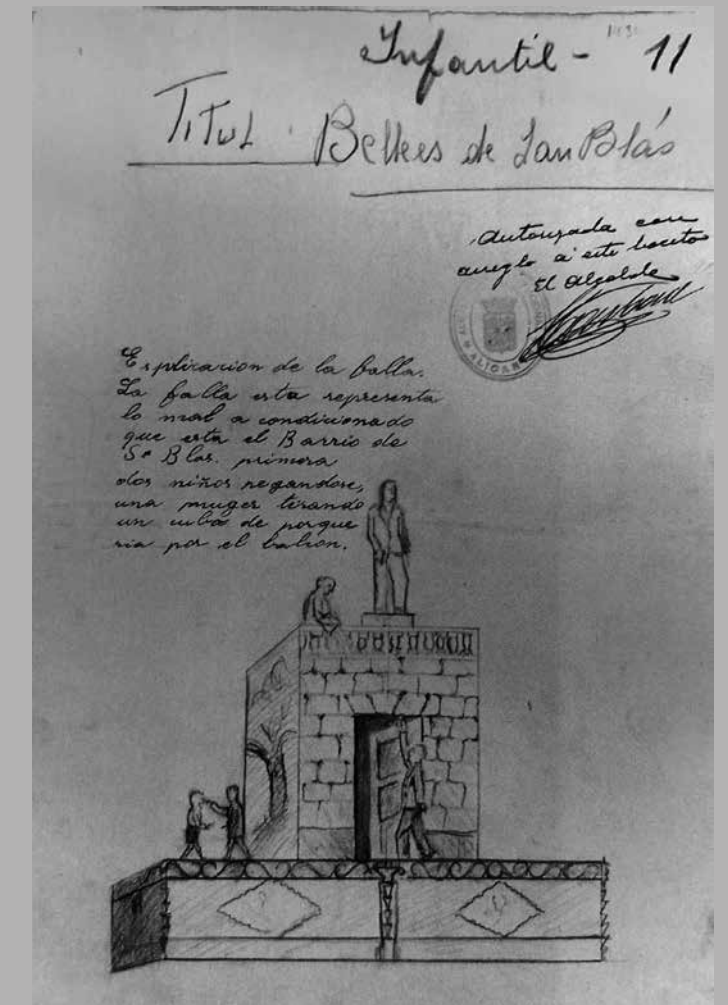 Infantil - 11
TITUL. Bellees de San Blás
Autorizada con
arreglo a este boceto
El Alcalde
ALICAN
Esplicacion de la falla.
La falla esta representa
lo mal a condicionado
que esta el Barrio de
Sn Blas. primero
dos niños pegandose,
una muger tirando
un cubo de porque
ria por el balcon.